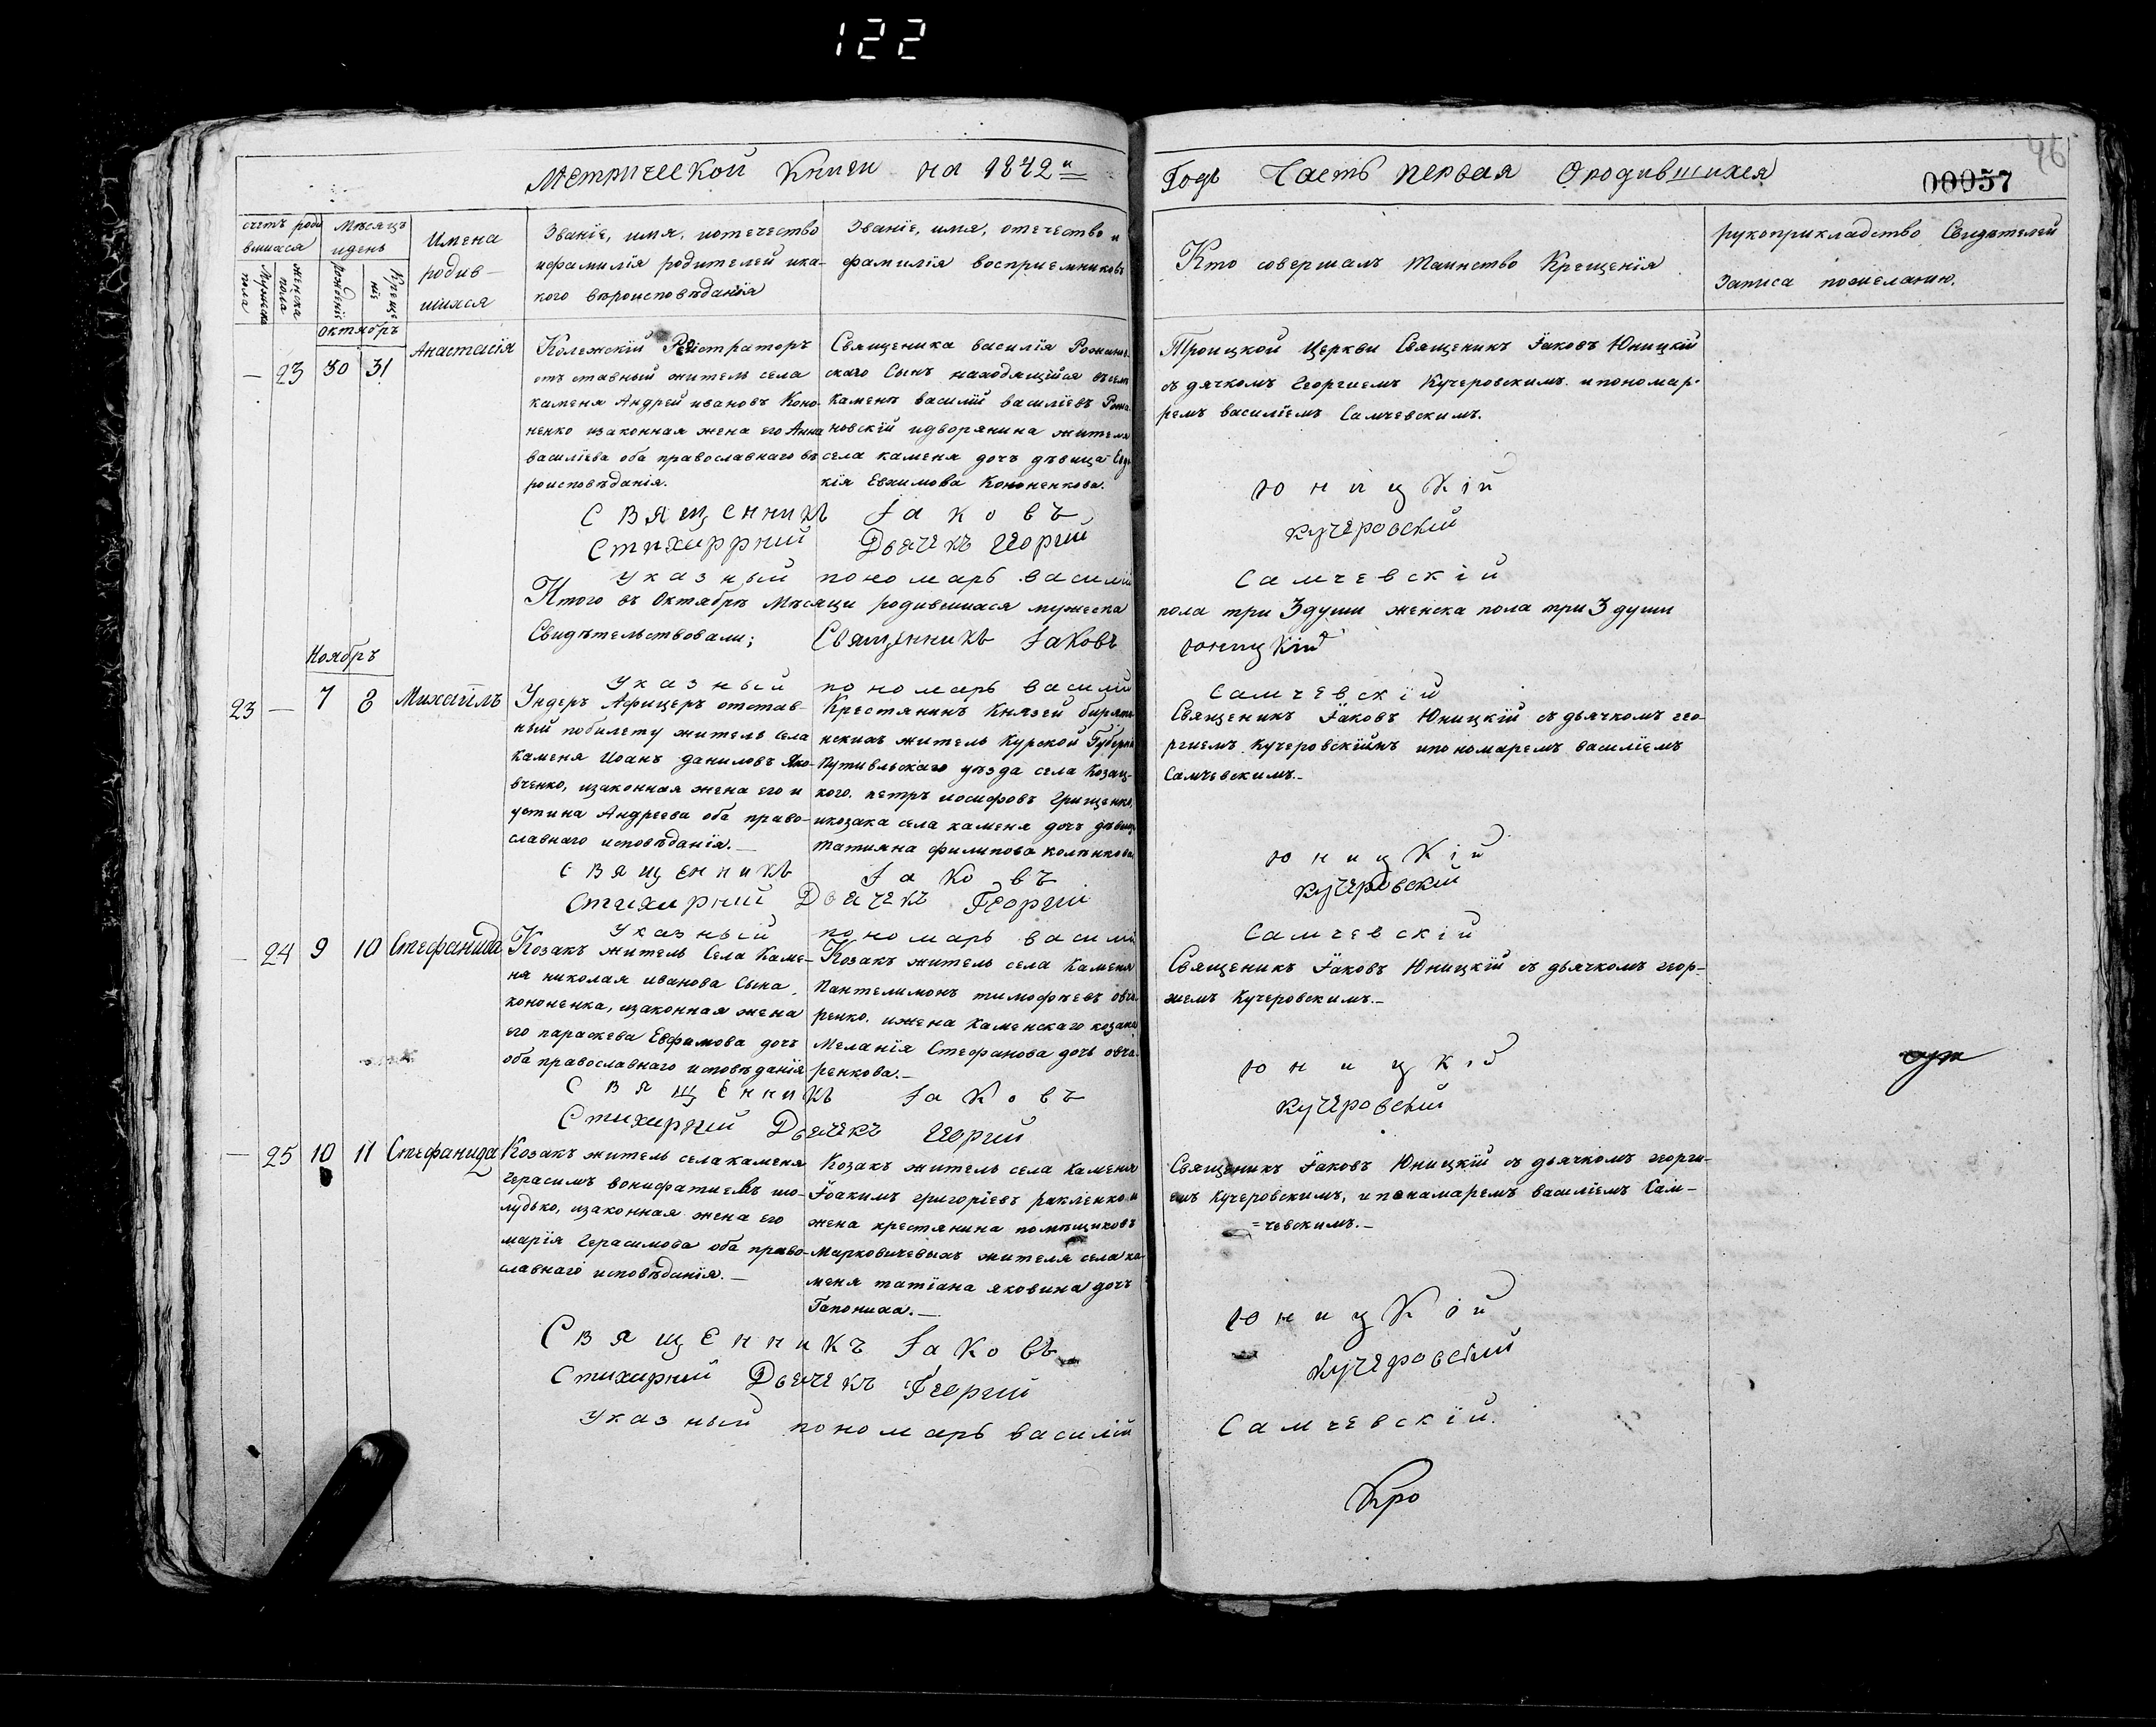 122
Метрической Книги на 1842й
Годъ Часть Первая Ородившихся
46
00057
счетъ роди
вшиася
Мужеска
пола
женска
пола
Мѣсяцъ
идень
рождені
Креще
ніе
Имена
родив-
шихся
Званіе, имя, иотечество
ифамилія родителей ика-
кого вѣроисповѣданія
Званіе, имя, отечество и
фамилія восприемниковъ
Кто совершалъ таинство Крещенія
рукоприкладство Свидѣтелей
Записа пожеланию.
октябръ
— 23 30 31 Анастасія
Колежскій Регистраторъ
отъ ставный житель села
каменя Андрей ивановъ Коно-
ненко изаконная жена его Анна
василіева оба православнаго вѣ
роисповѣданія.
Священика василія Романов
скаго Сынъ находящійся въсел
Каменѣ василій василіевъ Рома
новскій идворянина жителя
села каменя дочъ дѣвица Евдо
кія Евѳимова Кононенкова.
Троицкой Церкви Священикъ Іаковъ Юницкій
съ дячкомъ Георгиемъ Кучеровскимъ ипономар-
ремъ василіемъ Самчевскимъ.
Священникъ Іаковъ Юницкій
Стихиррный Дьячекъ Георгій Кучеровскій
Указный пономарь василій Самчевскій
Итого въ Октябрѣ Мѣсяци родившиася мужеска пола три 3 души женска пола три 3 души
Свидѣтельствовали; Священникъ Іаковъ Юницкій
Указный пономарь василій Самчевскій
Ноябръ
23 — 7 8 Михаилъ
Ундеръ Афицеръ отстав-
ный побилету житель села
Каменя Иоанъ даниловъ Яко-
вченко, изаконная жена его и
устина Андреева оба право-
славнаго исповѣданія.—
Крестянинъ Князей Барятин
нскихъ житель Курской Губерніи
Путивльскаго уѣзда села Козац-
кого. петръ иосифовъ Грищенко,
икозака села каменя дочъ дѣвица
татияна филипова колѣнкова
Священикъ Іаковъ Юницкій съ дьячкомъ гео-
ргиемъ Кучеровскіймъ ипономаремъ василіемъ
Самчевскимъ.—
Священникъ Іаковъ Юницкій
Стихирный Дьячекъ Георгій Кучеровскій
Указный пономарь василій Самчевскій
— 24 9 10 Стефанида
Козакъ житель Села Каме-
ня николая иванова Сына
кононенка, изаконная жена
его параскева Евфимова дочъ
оба православнаго исповѣданія
Козакъ житель села Каменя
Пантелимонъ тимофѣевъ овча
ренко. ижена Каменскаго козака
Меланія Стефанова дочь овча-
ренкова.—
Священикъ Іаковъ Юницкій съ дьячкомъ геор-
гиемъ Кучеровскимъ.—
Священникъ Іаковъ Юницкій
Стихирный Дьячекъ Георгій Кучеровскій
— 25 10 11 Стефанида
Козакъ житель села каменя
Герасимъ вонифатиевъ шо-
лудько, изаконная жена его
марія Герасимова оба право-
славнаго исповѣданія.—
Козакъ житель села Каменя
Іоакимъ григоріевъ ракленко и
жена крестянина помѣщиковъ
Марковичевыхъ жителя села ка-
меня татіана яковина дочъ
Гапониха.—
Священикъ Іаковъ Юницкій съ дьячкомъ георги-
емъ Кучеровскимъ, и понамаремъ василіемъ Сам-
=чевскимъ.—
Священникъ Іаковъ Юницкій
Стихирный Дьячекъ Георгій Кучеровскій
Указный пономарь василій Самчевскій.
Кро